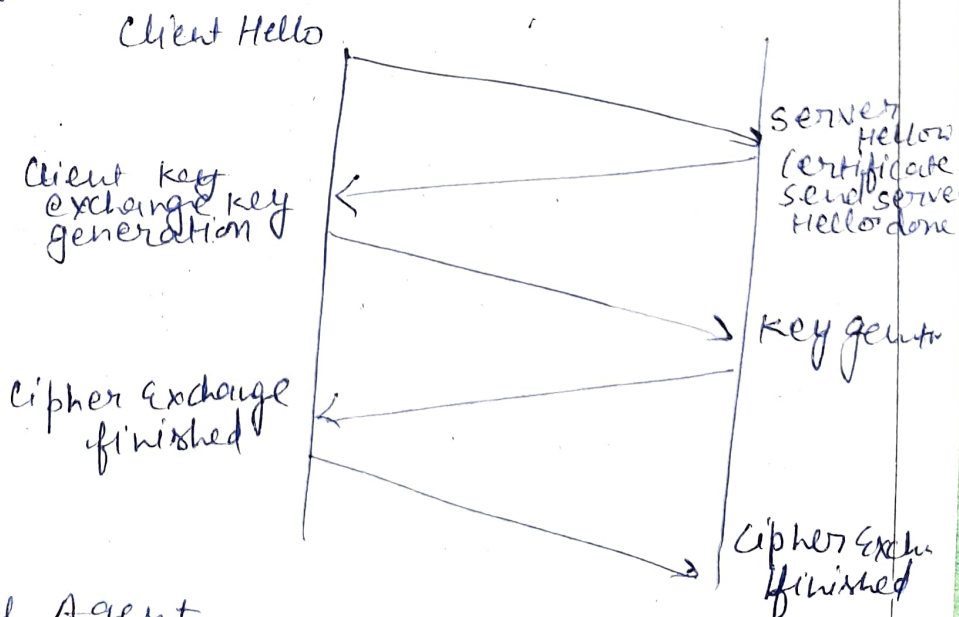 Client Hello
Server
Hellow
Certificate
send serve
Hello done
Client Key
exchange key
generation
Key genr
Cipher Exchange
finished
Cipher Exch.
finished
Agent